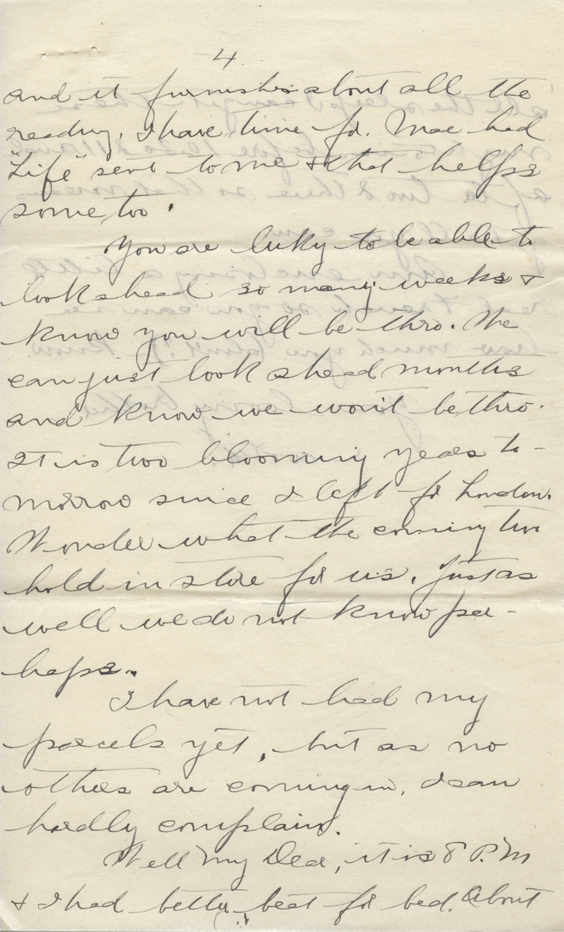 4.
and it furnishes about all the
reading, I have time for. Mac had
"Life" sent to me & that helps
some, too.
You are luky to be able to
look ahead so many weeks &
know you will be thro. We
can just look ahead months
and know we won't be thro.
It is two blooming years to-
morrow since I left for London.
Wonder what the coming two
hold in store for us. Just as
well we do not know per-
haps.
I have not had my
parcels yet, but as no
others are coming in, I can
hardly complain.
Well My Dear, it is 8 P.M
& I had better beat for bed. About